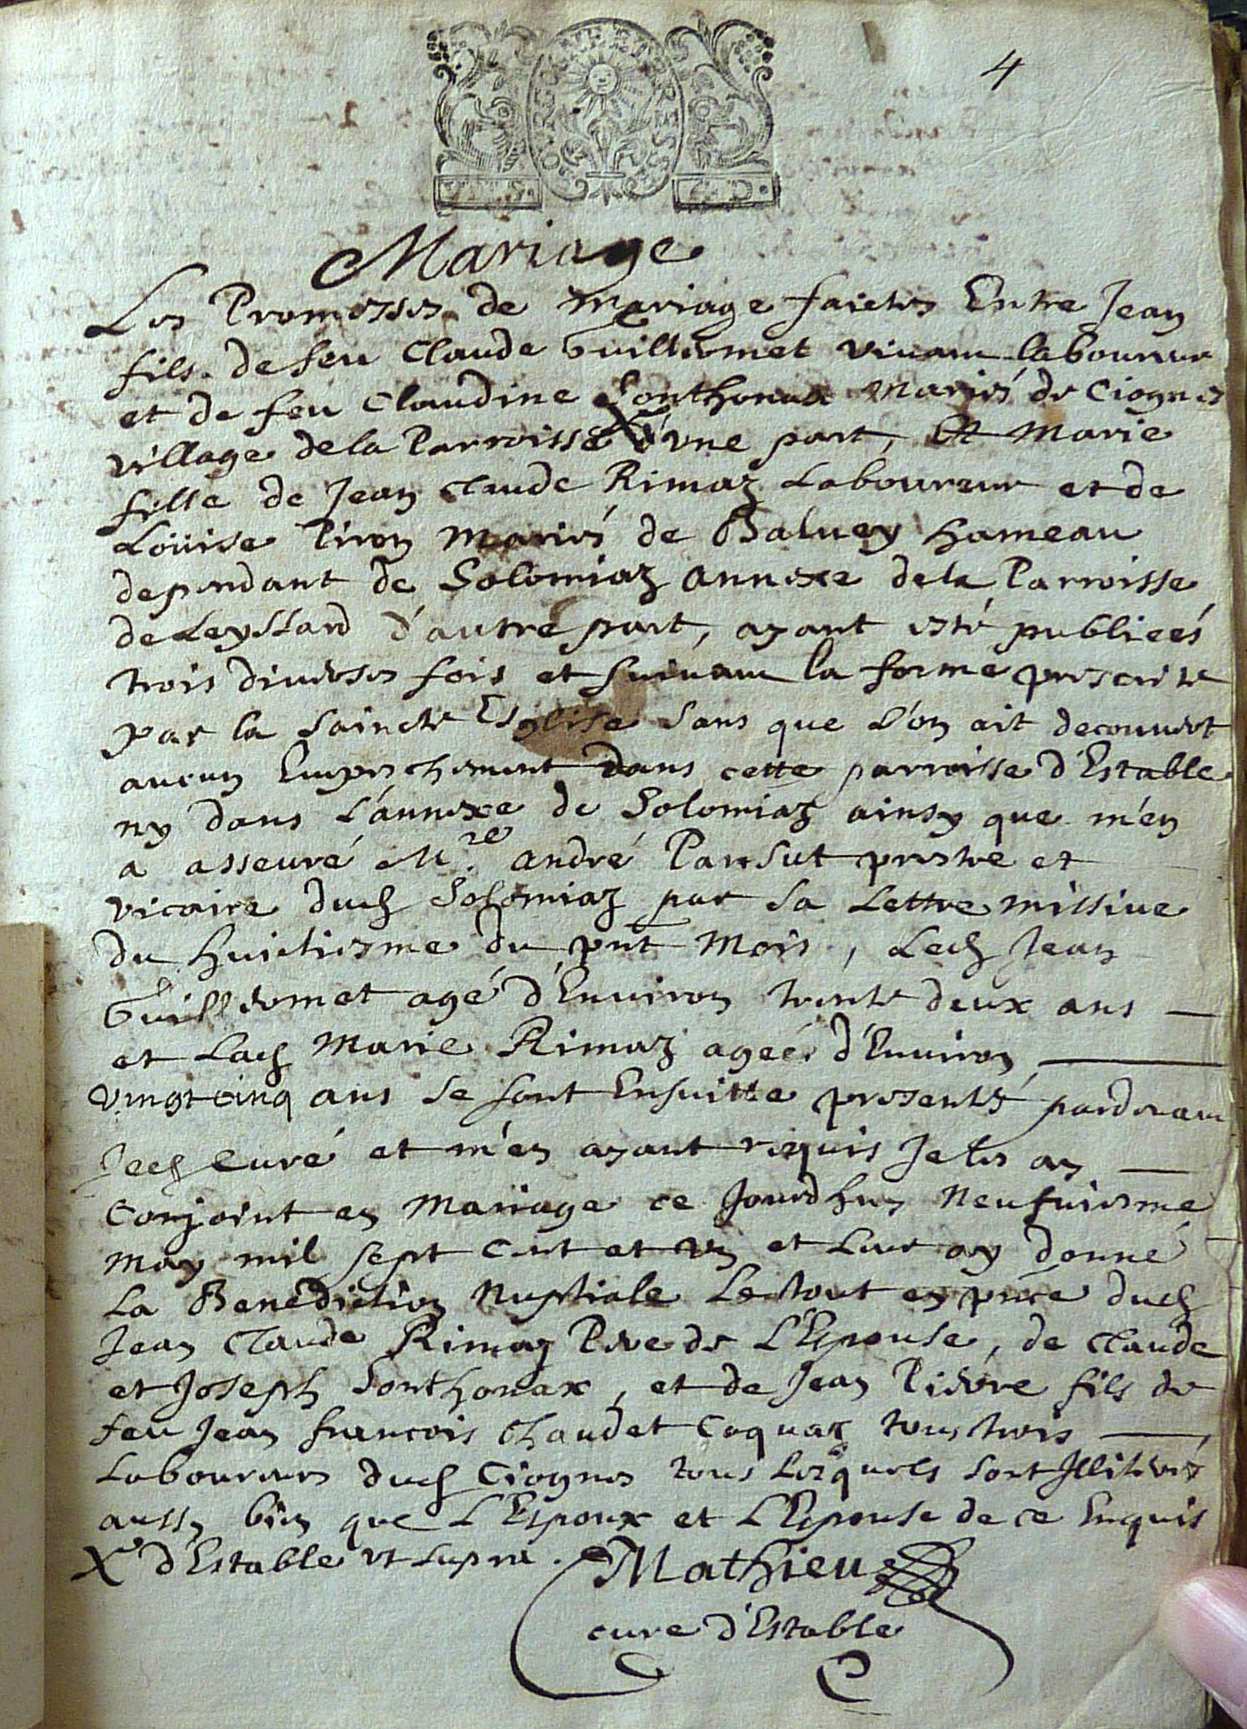 4
Mariage
Les Promesses de Mariage faictes Entre Jean
fils de feu Claude Guillermet vivant laboureur
et de feu Claudine Sonthonax Mariés de Ciognes
village de la Parroisse X d'une part, Et Marie
fille de Jean Claude Rimaz Laboureur et de
Loüise Piron Mariés de Balvey hameau
dependant de Solomiaz annexe de la Parroisse
de Leyssard d'autre part, ayant esté publiées
trois diverses fois et suivant la forme prescrite
par la Saincte Esglise sans que l'on ait decouvert
aucun Empeschement dans cette parroisse d'Estable
ny dans l'annexe de Solomiaz ainsy que m'en
a asseuré Mre André Pansut prestre et
vicaire dud Solomiaz par sa Lettre missive
du huictiesme du pnt Mois, Led Jean
Guillermet agé d'Environ trente deux ans
et Lad Marie Rimaz ageé d'Environ
vingt cinq ans se sont Ensuitte presentés pardevant
Led Curé et m'en ayant requis Je les ay
Conjoint en Mariage ce Jourdhuy Neufviesme
May mil sept cent et un et Leur ay donné
La Benediction Nuptiale Le tout en pnce dud
Jean Claude Rimaz Pere de L'Epouse, de Claude
et Joseph Sonthonax, et de Jean Pierre fils de
feu Jean francois Chaudet Coquaz tous trois
Laboureurs dud Ciognes tous Lesquels sont Illiterés
aussy bien que L'Epoux et L'Epouse de ce Enquis
X d'Estable ut supra.
Mathieu
cure d'Estable